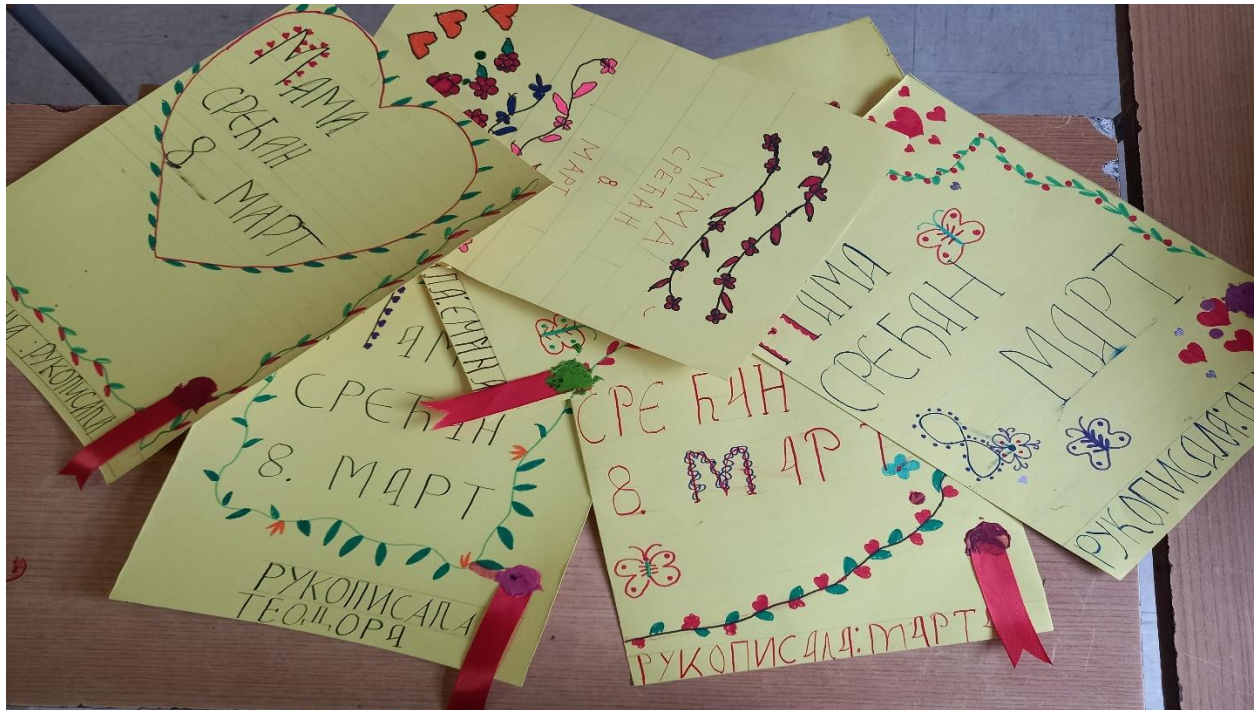 МАМА
СРЕЋАН
8 МАРТ
РУКОПИСАЛА
МАМА
СРЕЋАН
8.
МАРТ
СРЕЂАН
МАРТ
РУКОПИСАЛА:
СРЕЋАН
8. МАРТ
РУКОПИСАЛА
ТЕОДОРА
СРЕЋАН
8. МАРТ
РУКОПИСАЛА: МАРТА